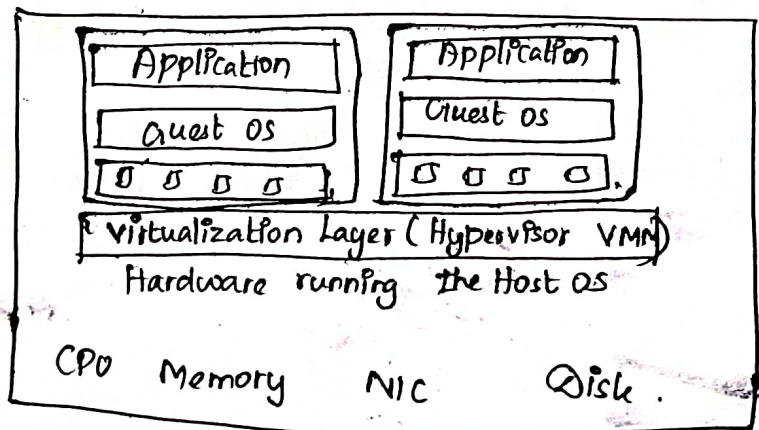 Application Application
Guest OS Guest OS
Virtualization Layer (Hypervisor VMM)
Hardware running the Host OS
CPU Memory NIC Disk.